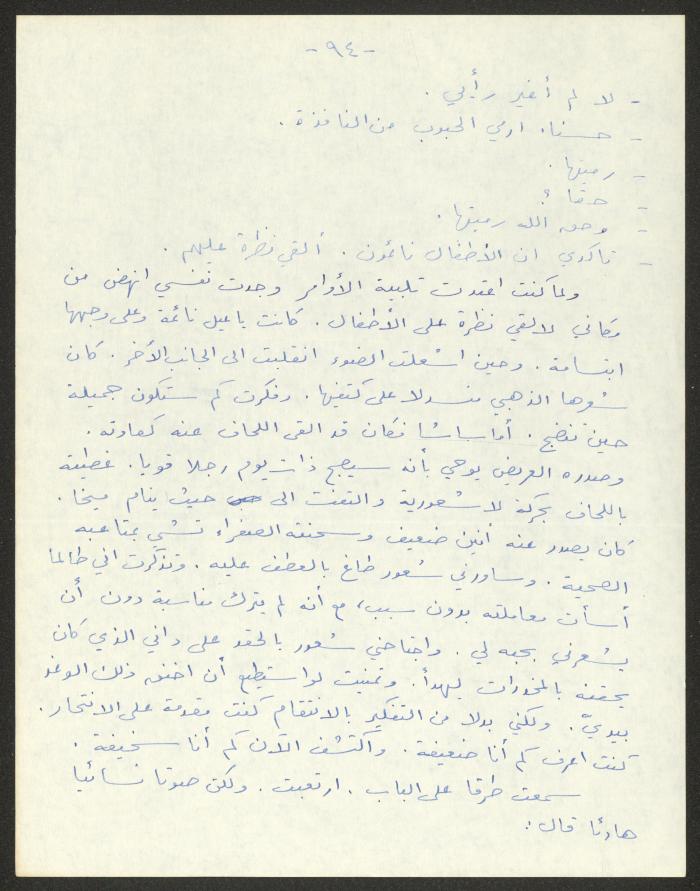 - ٩٤ -
- لا لم أغير رأيي .
- حسنا. ارمي الحبوب من النافذة .
- رميتها .
- حقا ؟
- وحق الله رميتها .
- تأكدي ان الأطفال نائمون . ألقي نظرة عليهم .
ولما كنت اعتدت تلبية الأوامر وجدت نفسي انهض من
مكاني لالقي نظرة على الأطفال . كانت ياعيل نائمة وعلى وجهها
ابتسامة . وحين اشعلت الضوء انقلبت الى الجانب الآخر . كان
شعرها الذهبي منسدلا على كتفيها . وفكرت كم ستكون جميلة
حين تنضج . أما ساشا فكان قد القى اللحاف عنه كعادته .
وصدره العريض يوحي بأنه سيصبح ذات يوم رجلا قويا . غطيته
باللحاف بحركة لا شعورية والتفت الى حيث ينام ميخا .
كان يصدر عنه أنين ضعيف وسحنته الصفراء تشي بمتاعبه
الصحية . وساورني شعور طاغ بالعطف عليه . وتذكرت اني طالما
أسأت معاملته بدون سبب، مع أنه لم يترك مناسبة دون أن
يشعرني بحبه لي . واجتاحني شعور بالحقد على داني الذي كان
يحقنه بالمخدرات ليهدأ . وتمنيت لو استطيع أن اخنق ذلك الوغد
بيديّ . ولكني بدلا من التفكير بالانتقام كنت مقدمة على الانتحار .
كنت اعرف كم أنا ضعيفة . واكتشف الآن كم أنا سخيفة .
سمعت طرقا على الباب . ارتعبت . ولكن صوتا نسائيا
هادئا قال :